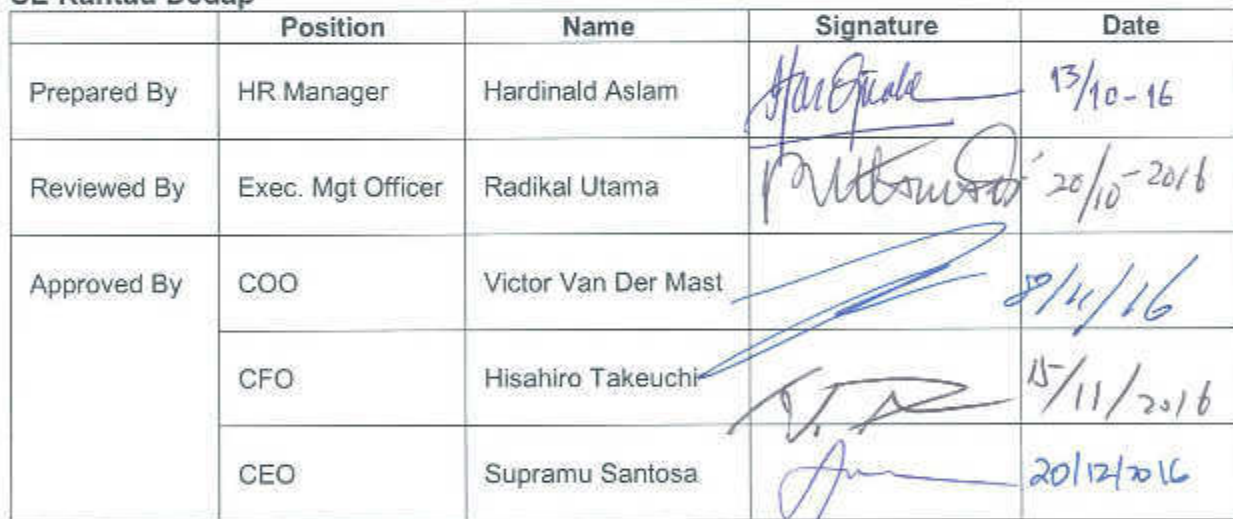 Position Name Signature Date
Prepared By HR Manager Hardinald Aslam 13/10-16
Reviewed By Exec. Mgt Officer Radikal Utama 20/10-2016
Approved By COO Victor Van Der Mast 8/11/16
CFO Hisahiro Takeuchi 15/11/2016
CEO Supramu Santosa 20/12/2016